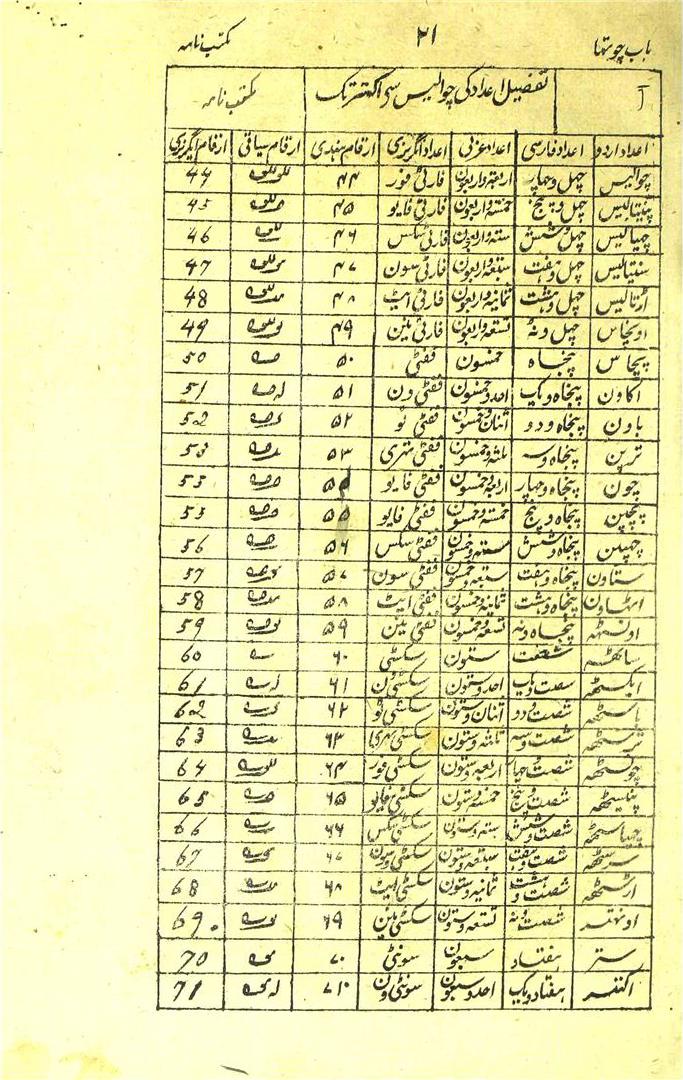 باب چوتھا ۲۱ مکتب نامہ
آ تفصیل اعداد کی چوالیس سے اکہتر تک مکتب نامہ
اعداد اردو اعداد فارسی اعداد عربی اعداد انگریزی ارقام ہندی ارقام سیاقی ارقام انگریزی
چوالیس چہل و چہار اربعہ و اربعون فارٹی فور ۴۴ 44
پینتالیس چہل و پنج خمسۃ و اربعون فارٹی فایو ۴۵ 45
چھیالیس چہل و شش ستہ و اربعون فارٹی سکس ۴۶ 46
سنتیالیس چہل و ہفت سبعہ و اربعون فارٹی سون ۴۷ 47
اڑتالیس چہل و ہشت ثمانیہ و اربعون فارٹی ایٹ ۴۸ 48
اونچاس چہل و نہ تسعہ و اربعون فارٹی نین ۴۹ 49
پچاس پنجاہ خمسون ففٹی ۵۰ 50
اکاون پنجاہ و یک احد و خمسون ففٹی ون ۵۱ 51
باون پنجاہ و دو اثنان و خمسون ففٹی ٹو ۵۲ 52
ترپن پنجاہ و سہ ثلثہ و خمسون ففٹی تھری ۵۳ 53
چون پنجاہ و چہار اربعہ و خمسون ففٹی فایو 55
پچپن پنجاہ و پنج خمستہ و خمسون ففٹی فایو ۵۵ 55
چھپن پنجاہ و شش ستہ و خمسون ففٹی سکس ۵۶ 56
ستاون پنجاہ و ہفت سبعہ و خمسون ففٹی سون ۵۷ 57
اٹھاون پنجاہ و ہشت ثمانیہ و خمسون ففٹی ایٹ ۵۸ 58
اونسٹھ پنجاہ و نہ تسعہ و خمسون ففٹی نین ۵۹ 59
ساٹھ شصت ستون سکسٹی ۶۰ 60
اکسٹھ شصت و یک احد و ستون سکسٹی ون ۶۱ 61
باسٹھ شصت و دو اثنان و ستون سکسٹی ٹو ۶۲ 62
ترسٹھ شصت و سہ ثلثہ و ستون سکسٹی تھری ۶۳ 63
چوسٹھ شصت و چہار اربعہ و ستون سکسٹی فور ۶۴ 64
پینسٹھ شصت و پنج خمسہ و ستون سکسٹی فایو ۶۵ 65
چھیاسٹھ شصت و شش ستہ و ستون سکسٹی سکس ۶۶ 66
سرسٹھ شصت و ہفت سبعہ و ستون سکسٹی سون ۶۷ 67
اڑسٹھ شصت و ہشت ثمانیہ و ستون سکسٹی ایٹ ۶۸ 68
اونہتر شصت و نہ تسعہ و ستون سکسٹی نین ۶۹ 69.
ستر ہفتاد سبعون سونٹی ۷۰ 70
اکہتر ہفتاد و یک احد و سبعون سونٹی ون ۷۱ 71